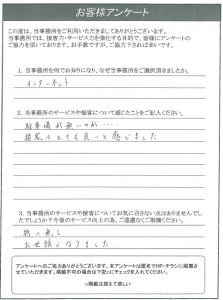 お客様アンケート
この度は、当事務所をご利用いただきましてありがとうございます。
当事務所では、接客力・サービス力を強化する目的で、皆様にアンケートの
ご協力を頂いております。お手数ですが、ご協力下されば幸いです。
1. 当事務所を何でお知りになり、なぜ当事務所をご選択頂きましたか。
インターネット
2. 当事務所のサービスや接客について感じたことをご記入ください。
駐車場が無いのが・・・・
接客はとても良いと感じました
3. 当事務所のサービスや接客についてお気に召さない点はありませんで
したでしょうか?今後のサービス向上の為、ご遠慮なくご指摘ください。
特に無し
お世話になりました
アンケートへのご協力ありがとうございます。本アンケートは匿名でHP・チラシに掲載さ
せていただきます。掲載不可の場合は下記□にチェックを入れてください。
□掲載は控えて欲しい